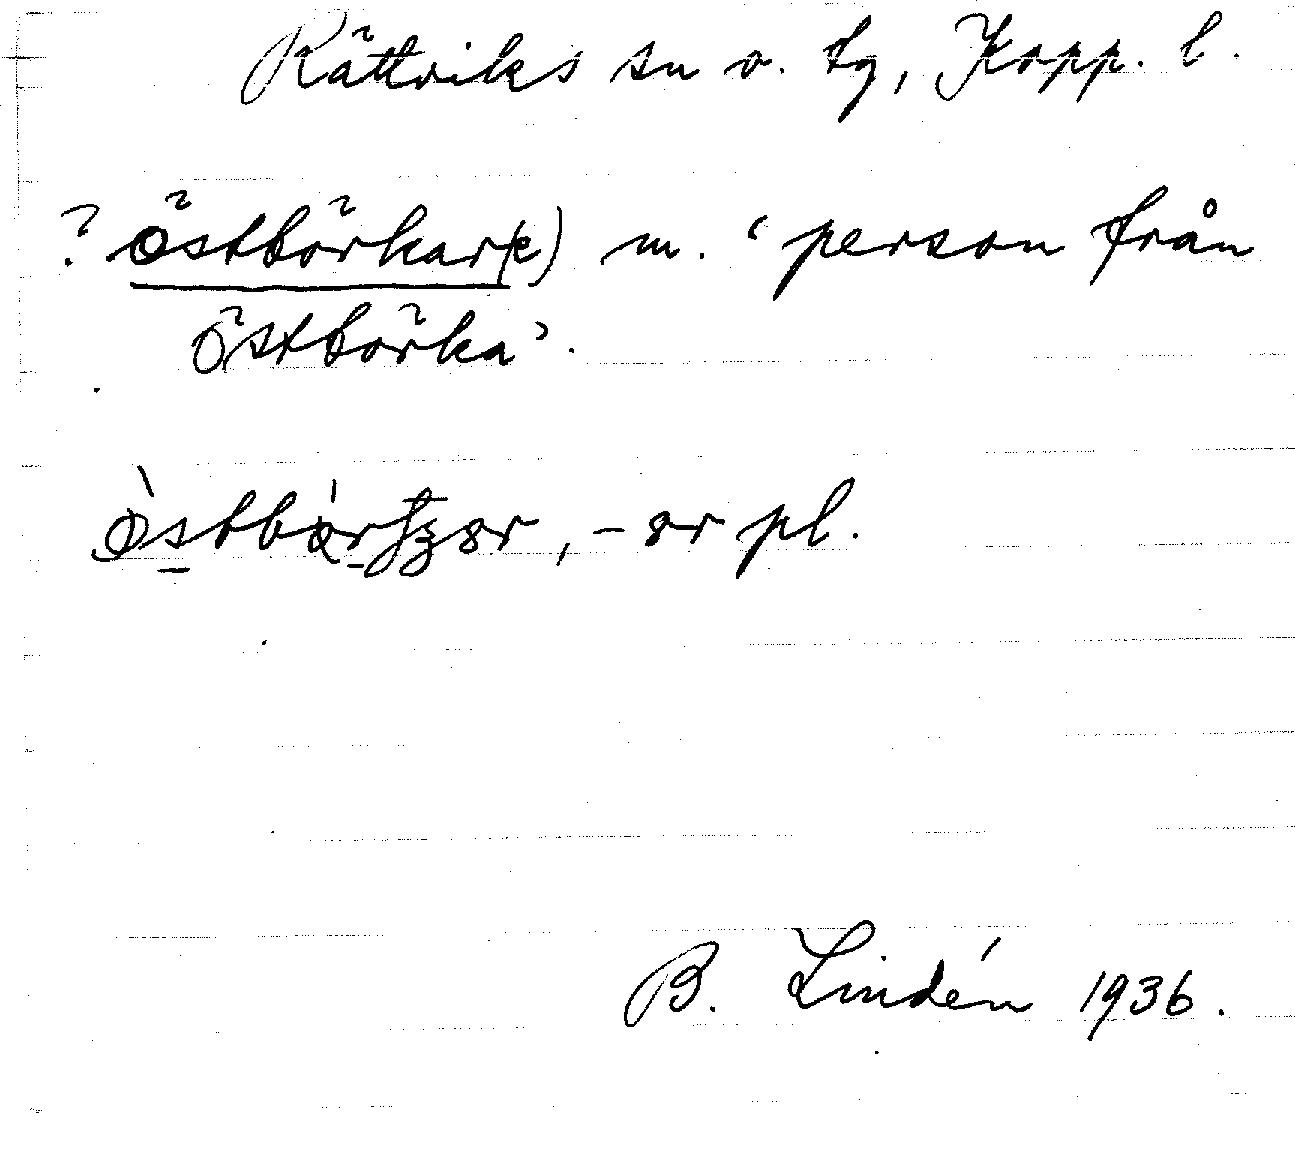 Rättviks sn o. tg, Kopp. l.
? östbörkar(e) m. ‘person från
Östbörka’.
, -ər pl.
B. Lindén 1936.